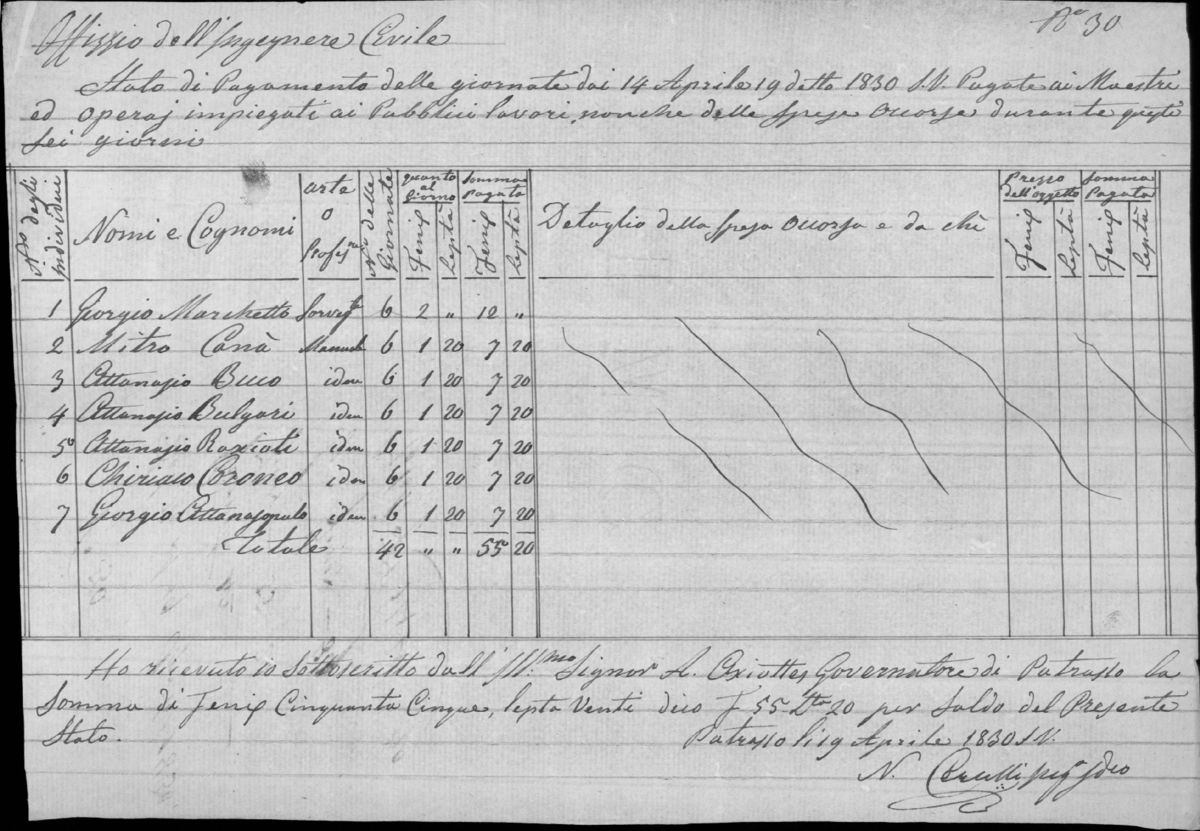 No 30
Offizio dell'Ingegnere Civile
Stato di Pagamento delle giornate dai 14 Aprile 19 detto 1830 S.V. Pagate ai Maestri
ed operaj impiegati ai Pubblici lavori, nonche delle spese occorse durante questi
sei giorni
No degli individui | Nomi e Cognomi | arte o Profesne | No delle Giornate | quanto al Giorno Fenix Leptà | Somma Pagata Fenix Leptà | Detaglio della spesa occorsa e da chi | Prezzo dell'oggetto Fenix Leptà | Somma Pagata Fenix Leptà
1 Giorgio Marchetto 6 2 " 12 "
2 Mitro Canà Manuale 6 1 20 7 20
3 Attanasio Buco idem 6 1 20 7 20
4 Attanasio Bulgari idem 6 1 20 7 20
5 Attanasio Raxioti idem 6 1 20 7 20
6 Chiriaco Coroneo idem 6 1 20 7 20
7 Giorgio Attanasopulo idem 6 1 20 7 20
Totale 42 " " 55 20
Ho ricevuto io sottoscritto dall' Ill.mo Signor A. Axiottes Governatore di Patrasso la
Somma di Fenix Cinquanta Cinque, lepta Venti dico F 55 Lta 20 per saldo del Presente
Stato. Patrasso li 19 Aprile 1830 S.V.
N.